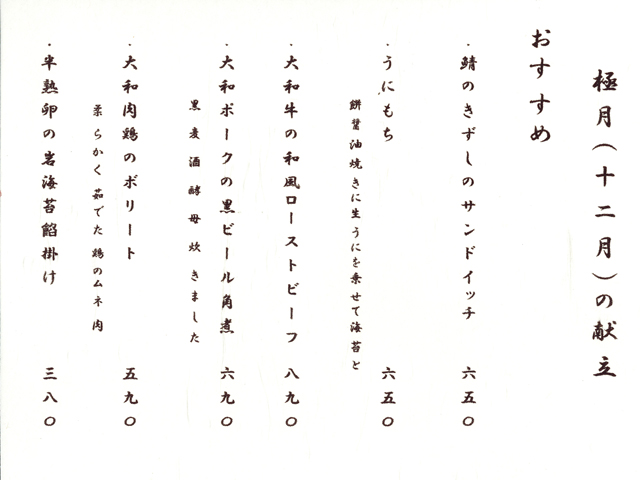 極月(十二月)の献立
おすすめ
・鯖のきずしのサンドイッチ 六五〇
・うにもち 六五〇
餅醤油焼きに生うにを乗せて海苔と
・大和牛の和風ローストビーフ 八九〇
・大和ポークの黒ビール角煮 六九〇
黒麦酒酵母炊きました
・大和肉鶏のボリート 五九〇
柔らかく茹でた鶏のムネ肉
・半熟卵の岩海苔餡掛け 三八〇